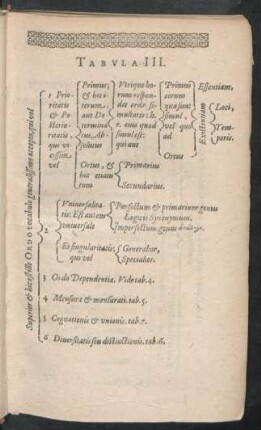 TABVLA III.
Superior & hæc est ille ORDO vocabulo generalissimè accepto, qui vel
1 Prioritatis & Posterioritatis: qui vicissim vel
Primus; & hic iterum aut Determinatus, Absolutus
Vtrique horum respondet ordo simultatis: h. e. eius quod simul est: qui aut
Primus eorum quæ sunt simul, vel quoad
Essentiam,
Existentiam
Loci,
Temporis.
Ortus
Ortus, & hic quatum
Primarius
Secundarius.
2
Vniuersalitatis: Est autem vniuersale
Perfectum & primarium: genus Logicè Synonymum.
Imperfectum: genus
Et singularitatis: qui vel
Generalior,
Specialior.
3 Ordo Dependentiæ. Vide tab. 4.
4 Mensuræ & mensurati. tab. 5.
5 Cognationis & vnionis. tab. 7.
6 Diuersitatis seu distinctionis. tab. 6.